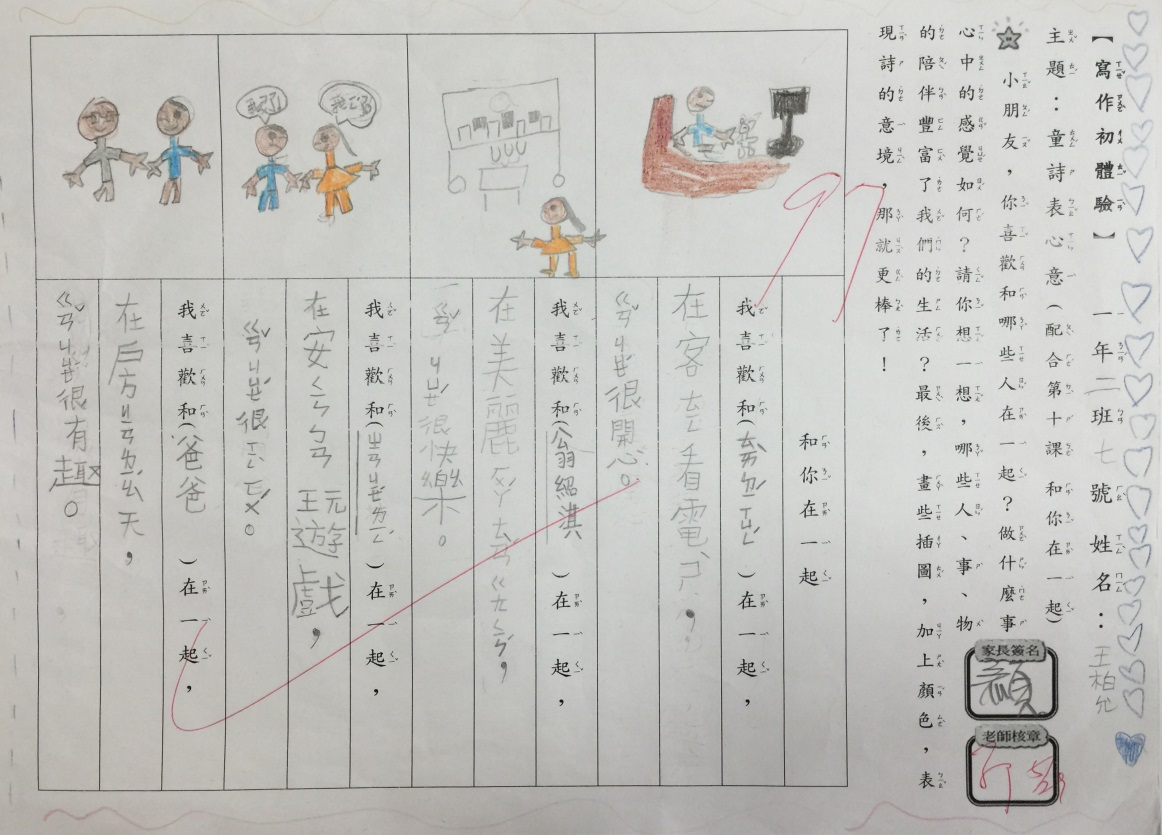 【寫作初體驗】 一年二班七號姓名：王柏允
主題：童詩表心意（配合第十課 和你在一起）
小朋友，你喜歡和哪些人在一起？做什麼事
心中的感覺如何？請你想一想，哪些人、事、物
的陪伴豐富了我們的生活？最後，畫些插圖，加上顏色，表
現詩的意境，那就更棒了！
家長簽名
顏
老師核章
97
和你在一起
我喜歡和( )在一起，
在客ㄊㄧㄥ看電ㄕˋ，
ㄍㄢˇㄐㄩㄝˊ很開心。
我喜歡和(翁紹淇)在一起，
在美麗
ㄍㄢˇㄐㄩㄝˊ很快樂。
我喜歡和( )在一起，
在安ㄑㄧㄣ ㄅㄢ玩遊戲，
ㄍㄢˇㄐㄩㄝˊ很ㄒㄧㄥˋㄈㄨˊ。
我喜歡和(爸爸)在一起，
在房ㄐㄧㄢ ㄌㄧㄠˊ天，
ㄍㄢˇㄐㄩㄝˊ很有趣。